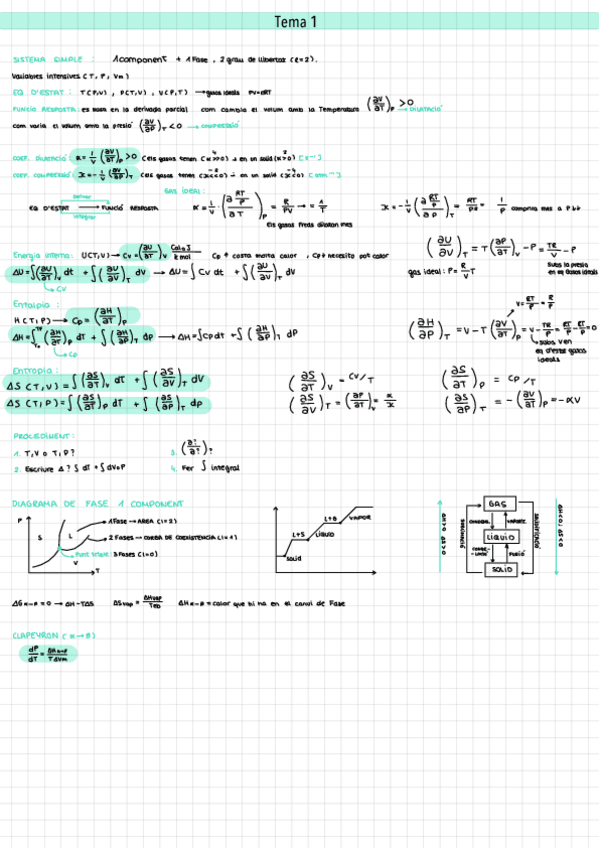 Tema 1
SISTEMA SIMPLE : 1 component + 1 Fase , 2 graus de llibertat (l=2).
Variables intensives (T, P, Vm)
EQ D'ESTAT : T(P,V) , P(T,V) , V(P,T) → gasos ideals PV=nRT
FUNCIÓ RESPOSTA: es basa en la derivada parcial com cambia el volum amb la Temperatura (∂V/∂T)P >0 → DILATACIÓ
com varia el volum amb la presió (∂V/∂P)T <0 → COMPRESSIÓ
COEF. DILATACIÓ: α = 1/V (∂V/∂T)P >0 (els gasos tenen (α>>0) i en un solid (α>0) [K⁻¹]
COEF. COMPRESSIÓ: χ = -1/V (∂V/∂P)T (els gasos tenen (χ<<0) i en un solid (χ<0) [atm⁻¹]
GAS IDEAL:
Derivar
EQ D'ESTAT → FUNCIÓ RESPOSTA
Integrar
α = 1/V · (∂ RT/P / ∂T)P = R/PV → 1/T
Els gasos freds dilaten mes
χ = -1/V (∂ RT/P / ∂P)T = RT/P²V = 1/P comprimix mes a P↓
Energia interna: U(T,V) → Cv = (∂U/∂T)V Cal o J / K mol Cp↑ costa donar calor , Cp↓ necesita pot calor
(∂U/∂V)T = T(∂P/∂T)V - P = TR/V - P
ΔU = ∫(∂U/∂T)V dt + ∫(∂U/∂V)T dV → ΔU = ∫Cv dt + ∫(∂U/∂V)T dV
gas ideal: P = R/V T
Subs la presio en eq Gasos ideals
Cv
Entalpia :
H(T,P) → Cp = (∂H/∂T)P
V = RT/P = R/P
ΔH = ∫(∂H/∂T)P dT + ∫(∂H/∂P)T dp → ΔH = ∫Cp dT + ∫(∂H/∂P)T dP
(∂H/∂P)T = V - T(∂V/∂T)P = V - TR/P = RT/P - RT/P = 0
subs V en eq d'estat gasos ideals
Cp
Entropia :
ΔS (T,V) = ∫(∂S/∂T)V dT + ∫(∂S/∂V)T dV
(∂S/∂T)V = Cv/T
(∂S/∂T)P = Cp/T
ΔS (T,P) = ∫(∂S/∂T)P dT + ∫(∂S/∂P)T dp
(∂S/∂V)T = (∂P/∂T)V = α/χ
(∂S/∂P)T = -(∂V/∂T)P = -αV
PROCEDIMENT:
1. T,V o T,P?
3. (∂?/∂?)?
2. Escriure Δ? ∫ dT + ∫ dV o P
4. Fer ∫ integral
DIAGRAMA DE FASE 1 COMPONENT
P
S
L
V
T
1 Fase → AREA (l=2)
2 FASES → CORBA DE COEXISTENCIA (l=1)
Punt triple: 3 Fases (l=0)
SOLID
L+S
LIQUID
L+G
VAPOR
ΔH>0 ΔS>0
SUBLIMACIÓ
GAS
LIQUID
FUSIÓ
SOLID
ΔH<0, ΔS<0
ΔGα-β = 0 → ΔH-TΔS ΔSvap = ΔHvap/Teb ΔHα-β = calor que hi ha en el canvi de Fase
CLAPEYRON (α→β)
dP/dT = ΔHα→β / TΔVm